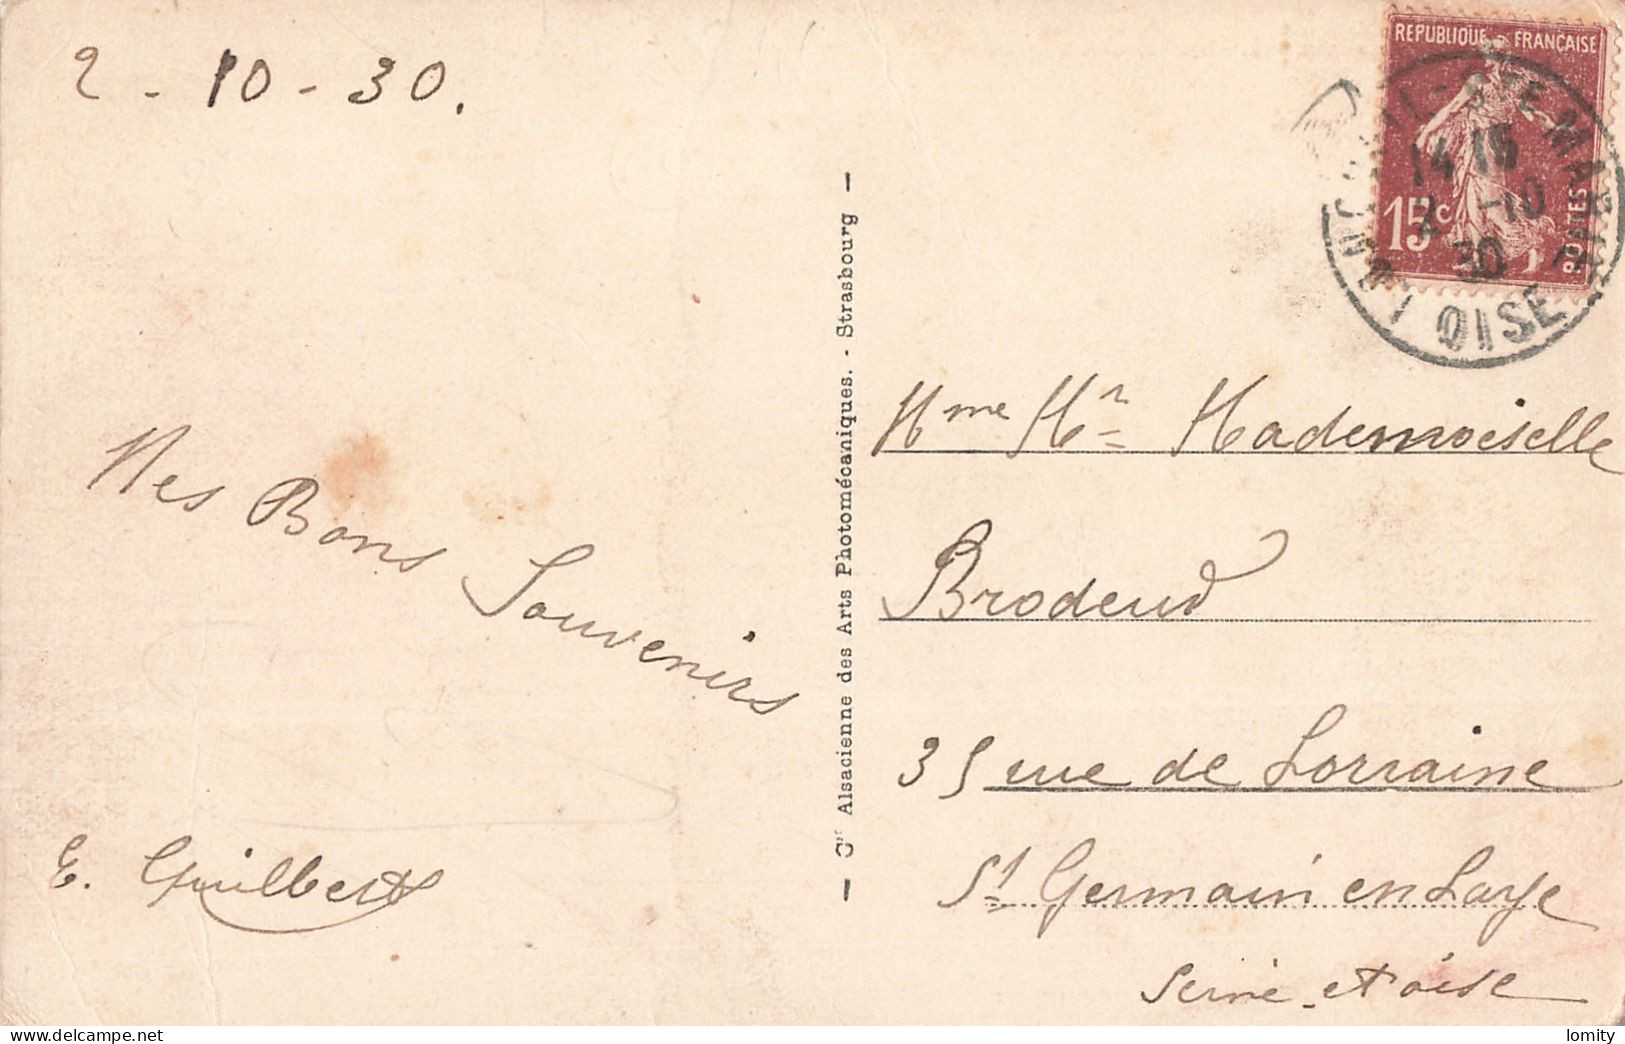 2 - 10 - 30.
Mes Bons Souvenirs
E. Guilbert
— Cie Alsacienne des Arts Photomécaniques. - Strasbourg —
REPUBLIQUE FRANÇAISE
15c
POSTES
14 15
2 -10
30
OISE
Mme Mr Mademoiselle
35 rue de Lorraine
St Germain en Laye
Seine et oise
lomity